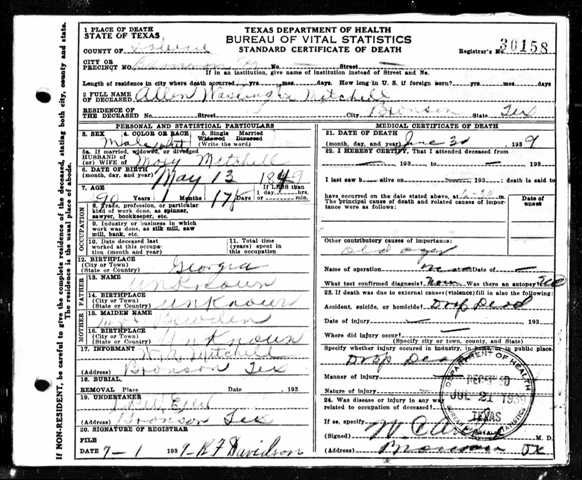 1 PLACE OF DEATH
STATE OF TEXAS
COUNTY OF Sabine
CITY OR
PRECINCT NO.
TEXAS DEPARTMENT OF HEALTH
BUREAU OF VITAL STATISTICS
STANDARD CERTIFICATE OF DEATH
Registrar's No. 30158
Street
If in an institution, give name of institution instead of Street and No.
Length of residence in city where death occurred yrs. mos. days. How long in U. S. if foreign born? yrs. mos. days.
2 FULL NAME
OF DECEASED Allen Mitchell
RESIDENCE OF
THE DECEASED No. Street City Bronson State Tex
PERSONAL AND STATISTICAL PARTICULARS
3. SEX 4. COLOR OR RACE 5. Single Married
Widowed Divorced
Male
5a. If married, widowed, or divorced
HUSBAND OF
(or) WIFE OF Mary Mitchell
6. DATE OF BIRTH
(month, day, and year) May 13 1849
7. AGE
90 Years Months 17 Days If LESS than
8. Trade, profession, or particular
kind of work done, as spinner,
sawyer, bookkeeper, etc.
9. Industry or business in which
work was done, as silk mill, saw
mill, bank, etc.
10. Date deceased last
worked at this occupation
(month and year)
11. Total time (years)
spent in this
occupation
OCCUPATION
12. BIRTHPLACE
(City or Town)
(State or Country) Georgia
13. NAME
Unknown
14. BIRTHPLACE
(City or Town)
(State or Country) Unknown
FATHER
15. MAIDEN NAME
16. BIRTHPLACE
(City or Town)
(State or Country) Unknown
MOTHER
17. INFORMANT
Mitchell
(Address) Bronson Tex
18. BURIAL,
REMOVAL Place Date 193
19. UNDERTAKER
(Address) Bronson Tex
20. SIGNATURE OF REGISTRAR
FILE
DATE 7-1 1939 - R F Davidson
MEDICAL CERTIFICATE OF DEATH
21. DATE OF DEATH
(month, day, and year) June 30 1939
22. I HEREBY CERTIFY, That I attended deceased
from 193 , to 193
I last saw h alive on 193 death is said to
have occurred on the date stated above, at m.
The principal cause of death and related causes of importance
were as follows:
Date of
onset
Other contributory causes of importance:
Old age
Name of operation Date of
What test confirmed diagnosis? Was there an autopsy?
23. If death was due to external causes (violence) fill in also the following:
Accident, suicide, or homicide? Drop Dead
Date of injury 193
Where did injury occur?
(Specify city or town, county, and State)
Specify whether injury occured in industry, in home, or in public place
Drop Dead
Manner of injury
Nature of injury
24. Was disease or injury in any way
related to occupation of deceased?
If so, specify
(Signed) M. D.
(Address) Bronson TX
DEPARTMENT OF HEALTH
RECEIVED
JUL 21 1939
TEXAS
If NON-RESIDENT, be careful to give the complete residence of the deceased, stating both city, county and state.
The residence is the usual place of abode.